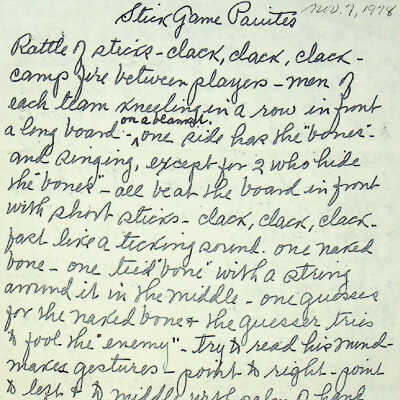 Stick Game Paiutes Nov. 7, 1978
Rattle of sticks - clack, clack, clack -
camp fire between players - men of
each team kneeling in a row in front
on a blanket,
a long board - one side has the "bones" -
and singing, except for 2 who hide
the "bones" - all beat the board in front
with short sticks - clack, clack, clack -
fast like a ticking sound. one naked
bone - one tied "bone" with a string
around it in the middle - one guesses
for the naked bone & the guesser tries
to fool the "enemy" - try to read his mind -
makes gestures - point to right - point
to left & to middle with palm of hand